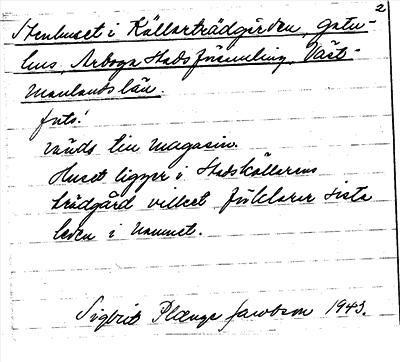 2
Stenhuset i Källarträdgården, gatu-
hus, Arboga Stadsförsamling, Väst-
manlands län.
foto!
vånds till magasin.
Huset ligger i Stadskällarens
trädgård vilket förklarar sista
leden i namnet.
Sigbrit Plænge Jacobson 1943.